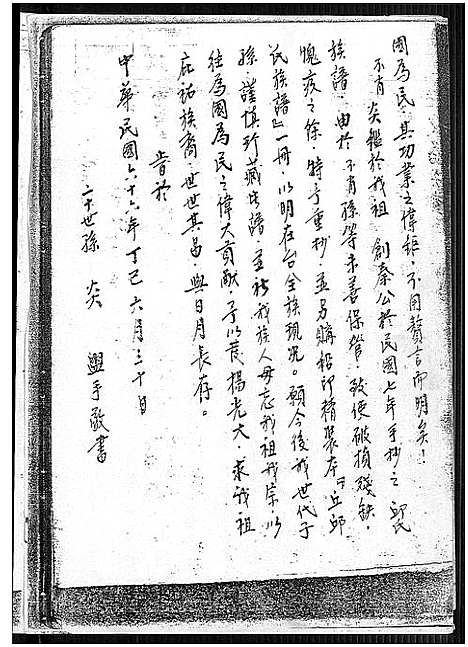 國為民,其功業之偉鉅,不用贅言而明矣!
不肖炎鑑於我祖 創泰公於民國七年手抄之邱氏
族譜,由於不肖孫等未善保管,致使破損殘缺,
愧疚之餘,特予重抄,並另購招印精裝本『丘邱
氏族譜』一冊,以明在台全族現況。願今後我世代子
孫,謹慎珍藏此譜,並祈我族人毋忘我祖我宗,以
往為國為民之偉大貢獻,予以發揚光大,求我祖
庇祐族裔,世世其昌,與日月長存。
旨於
中華民國六十六年丁巳六月三十日
二十世孫 炎 盥手敬書